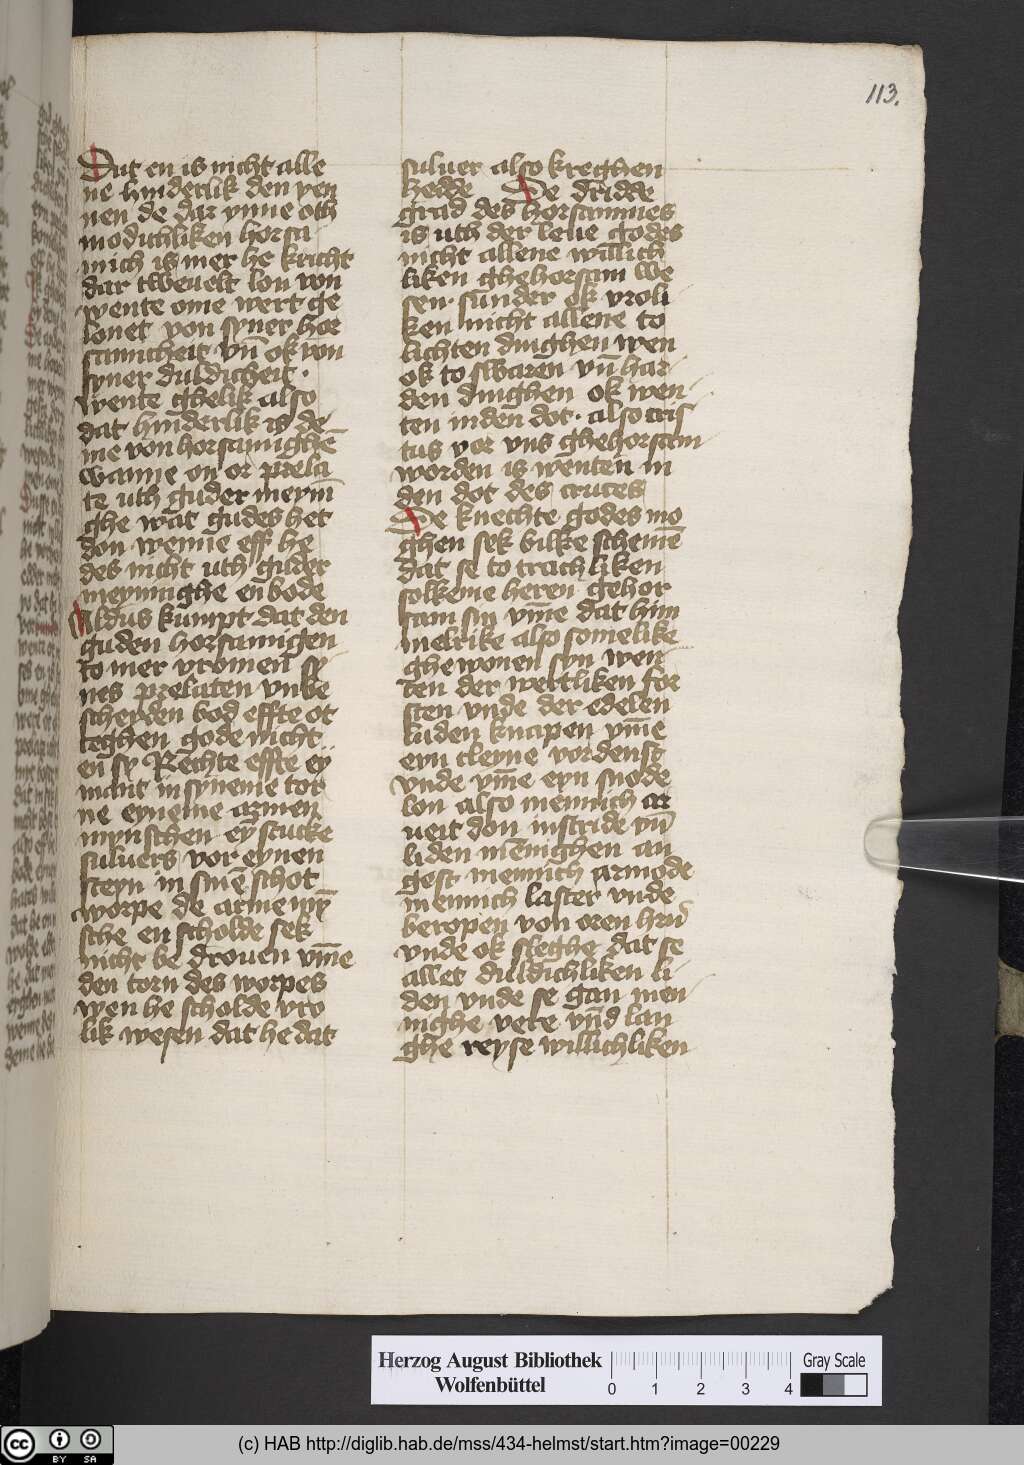 113.
Dut en is nicht alle
ne hinderlik den yen
nen de dar ynne oth
modichliken horsa
mich is mer he kricht
dar tweuelt lon von
wente ome wert ge
lonet von syner hor
samicheit vn̄ ok von
syner duldicheit ·
wente ghelik also
dat hinderlik is de
me von horsamighē
wanne on or prela
te uth guder meyni
ghe wat gudes het
don wenne eff he
des nicht uth guder
meyninghe en bode
Aldus kumpt dat den
guden horsamigen
to mer vromen sy
nes prelaten vnbe
scheyden bod effte ot
leghen gode nicht
en sy Rechte effte ey
mant in syneme tor
ne eyneme armen
mynschen ey stucke
suluers vor eynen
steyn in sinē schot
worpe de arme my
sche en scholde sek
nicht be drouen vm̄e
den torn des worpes
wen he scholde vro
lik wesen dat he dat
suluer also kreghen
hedde De dridde
grad des horsammes
is uth der leue godes
nicht allene willich
liken ghehorsam we
sen · sunder ok vroli
ken nicht allene to
lichten dinghen wen
ok to swaren vn̄ har
den dinghen ok wen
ten in den dot · also cris
tus vor vns ghehorsam
worden is wenten in
den dot des cruces
De knechte godes mo
ghen sek bilke schemē
dat se to trachliken
solkeme heren gehor
sam sin vm̄e dat him
melrike also somelike
ghe wonen syn wen
ten der wertliken for
sten vnde der edelen
luden knapen vm̄e
eyn cleyne vordenst
vnde vm̄e eyn snode
lon also mennich ar
ueit don in stride vn̄
liden mēnighen an
gest mennich armode
mennich laster vnde
beropen von oren hrn̄
vnde ok sleghe dat se
allet duldichliken li
den vnde se gan men
nighe vere vn̄d lan
ghe reyse willichliken
Herzog August Bibliothek
Wolfenbüttel
0 1 2 3 4
Gray Scale
cc BY SA
(c) HAB http://diglib.hab.de/mss/434-helmst/start.htm?image=00229